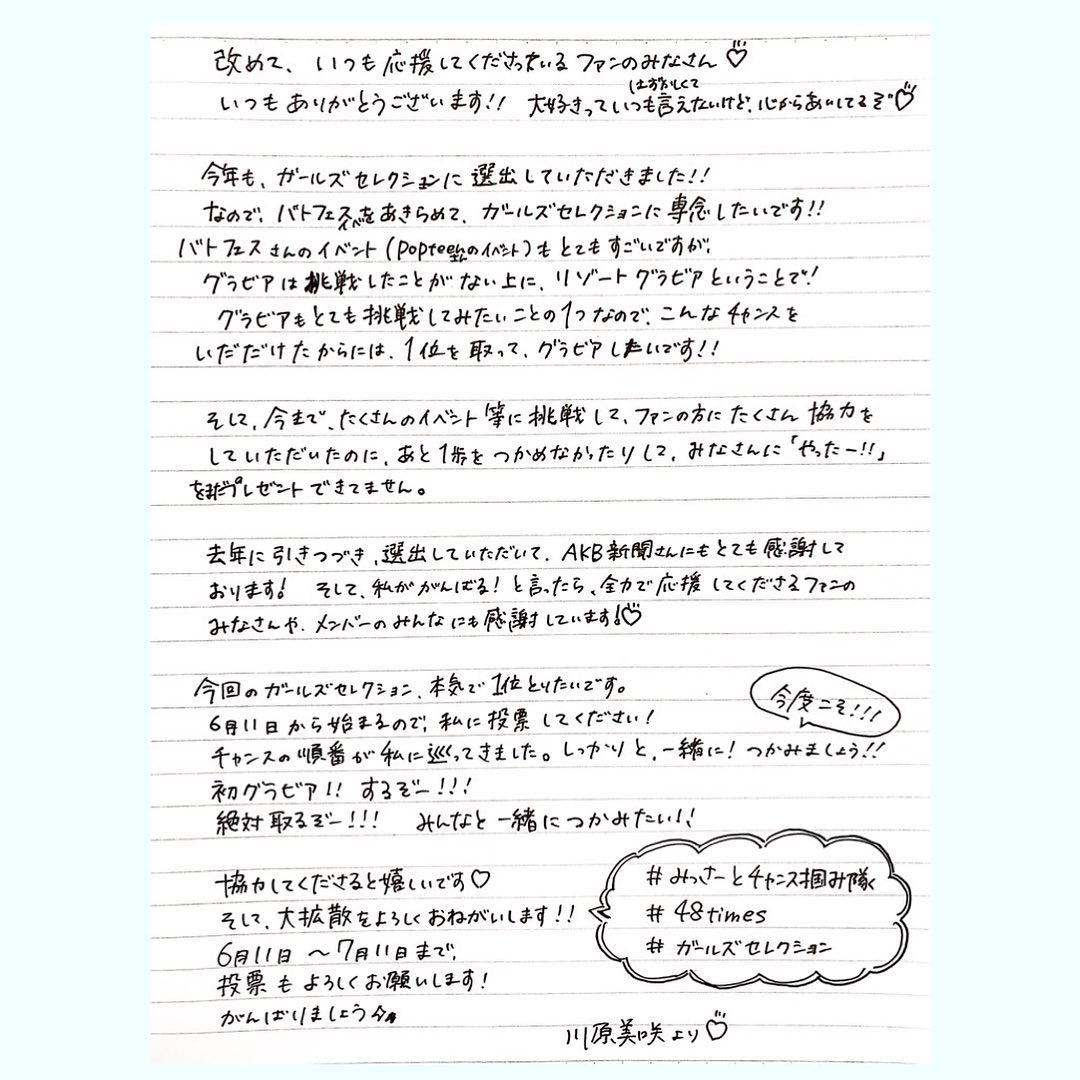 改めて、いつも応援してくださっているファンのみなさん♡
いつもありがとうございます!! 大好きっていつもはずかしくて言えないけど、心からあいしてるぞ♡
今年も、ガールズセレクションに選出していただきました!!
なので、バトフェスイベをあきらめて、ガールズセレクションに専念したいです!!
バトフェスさんのイベント(popteenさんのイベント)もとてもすごいですが、
グラビアは挑戦したことがない上に、リゾートグラビアということで!
グラビアもとても挑戦してみたいことの1つなので、こんなチャンスを
いだだけたからには、1位を取って、グラビアしたいです!!
そして、今まで、たくさんのイベント等に挑戦して、ファンの方にたくさん協力を
していただいたのに、あと1歩をつかめなかったりして、みなさんに「やったー!!」
をまだプレゼントできてません。
去年に引きつづき、選出していただいて、AKB新聞さんにもとても感謝して
おります! そして、私ががんばる!と言ったら、全力で応援してくださるファンの
みなさんや、メンバーのみんなにも感謝しています!♡
今回のガールズセレクション、本気で1位とりたいです。
今度こそ!!!
6月11日から始まるので、私に投票してください!
チャンスの順番が私に巡ってきました。しっかりと、一緒に!つかみましょう!!
初グラビア!! するぞー!!!
絶対取るぞー!!! みんなと一緒につかみたい!!
協力してくださると嬉しいです♡
そして、大拡散をよろしくおねがいします!!
6月11日〜7月11日まで、
投票もよろしくお願いします!
がんばりましょう
#みっさーとチャンス掴み隊
#48times
#ガールズセレクション
川原美咲より♡